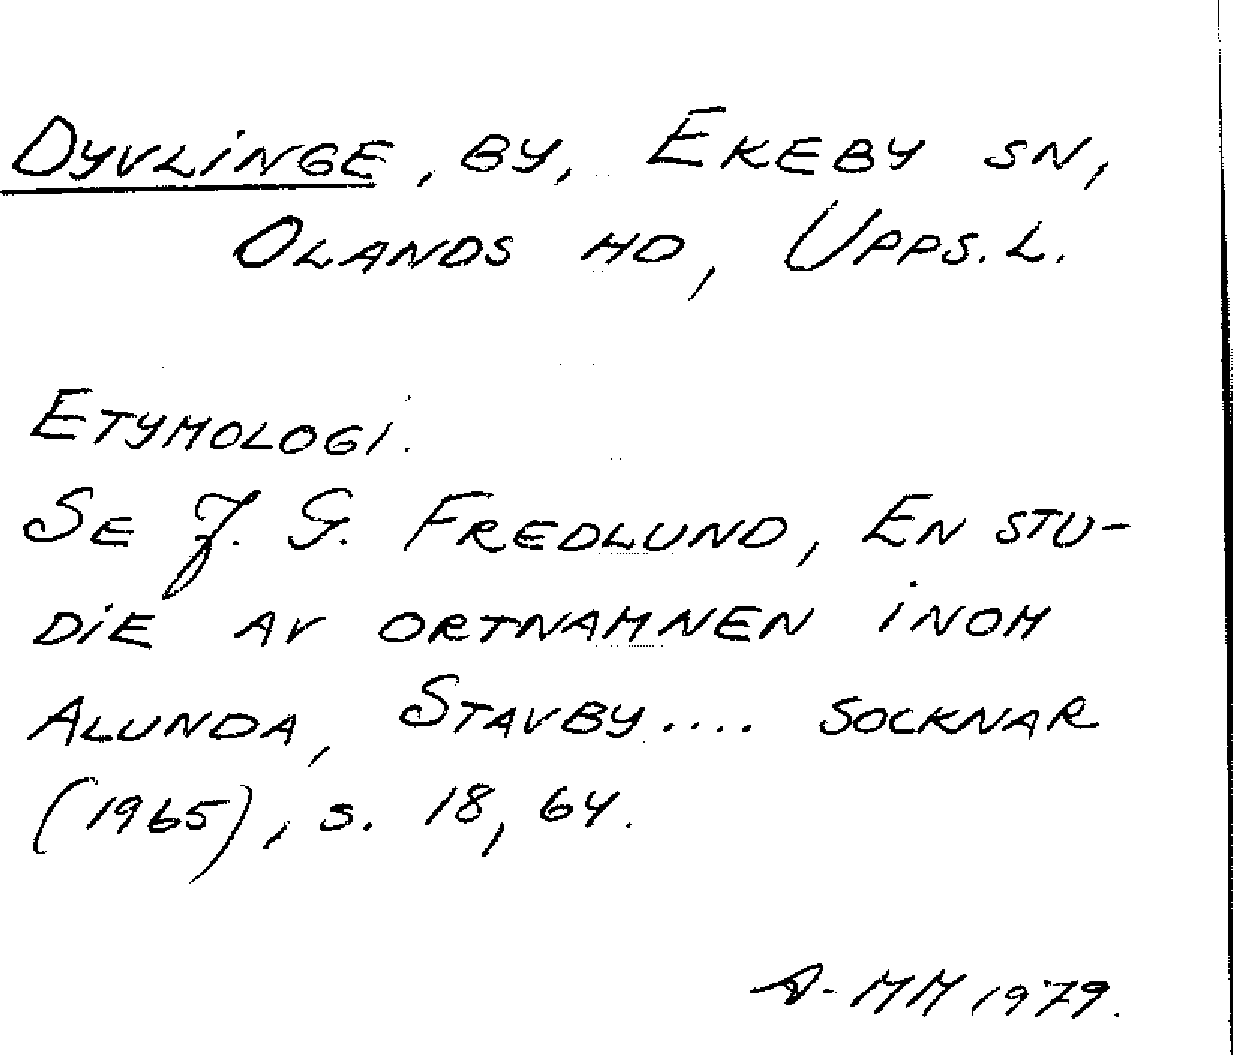 Dyvlinge, by, Ekeby sn,
Olands hd, Upps. l.
Etymologi.
Se J. G. Fredlund, En stu-
die av ortnamnen inom
Alunda, Stavby.... socknar
(1965), s. 18, 64.
A-MM 1979.